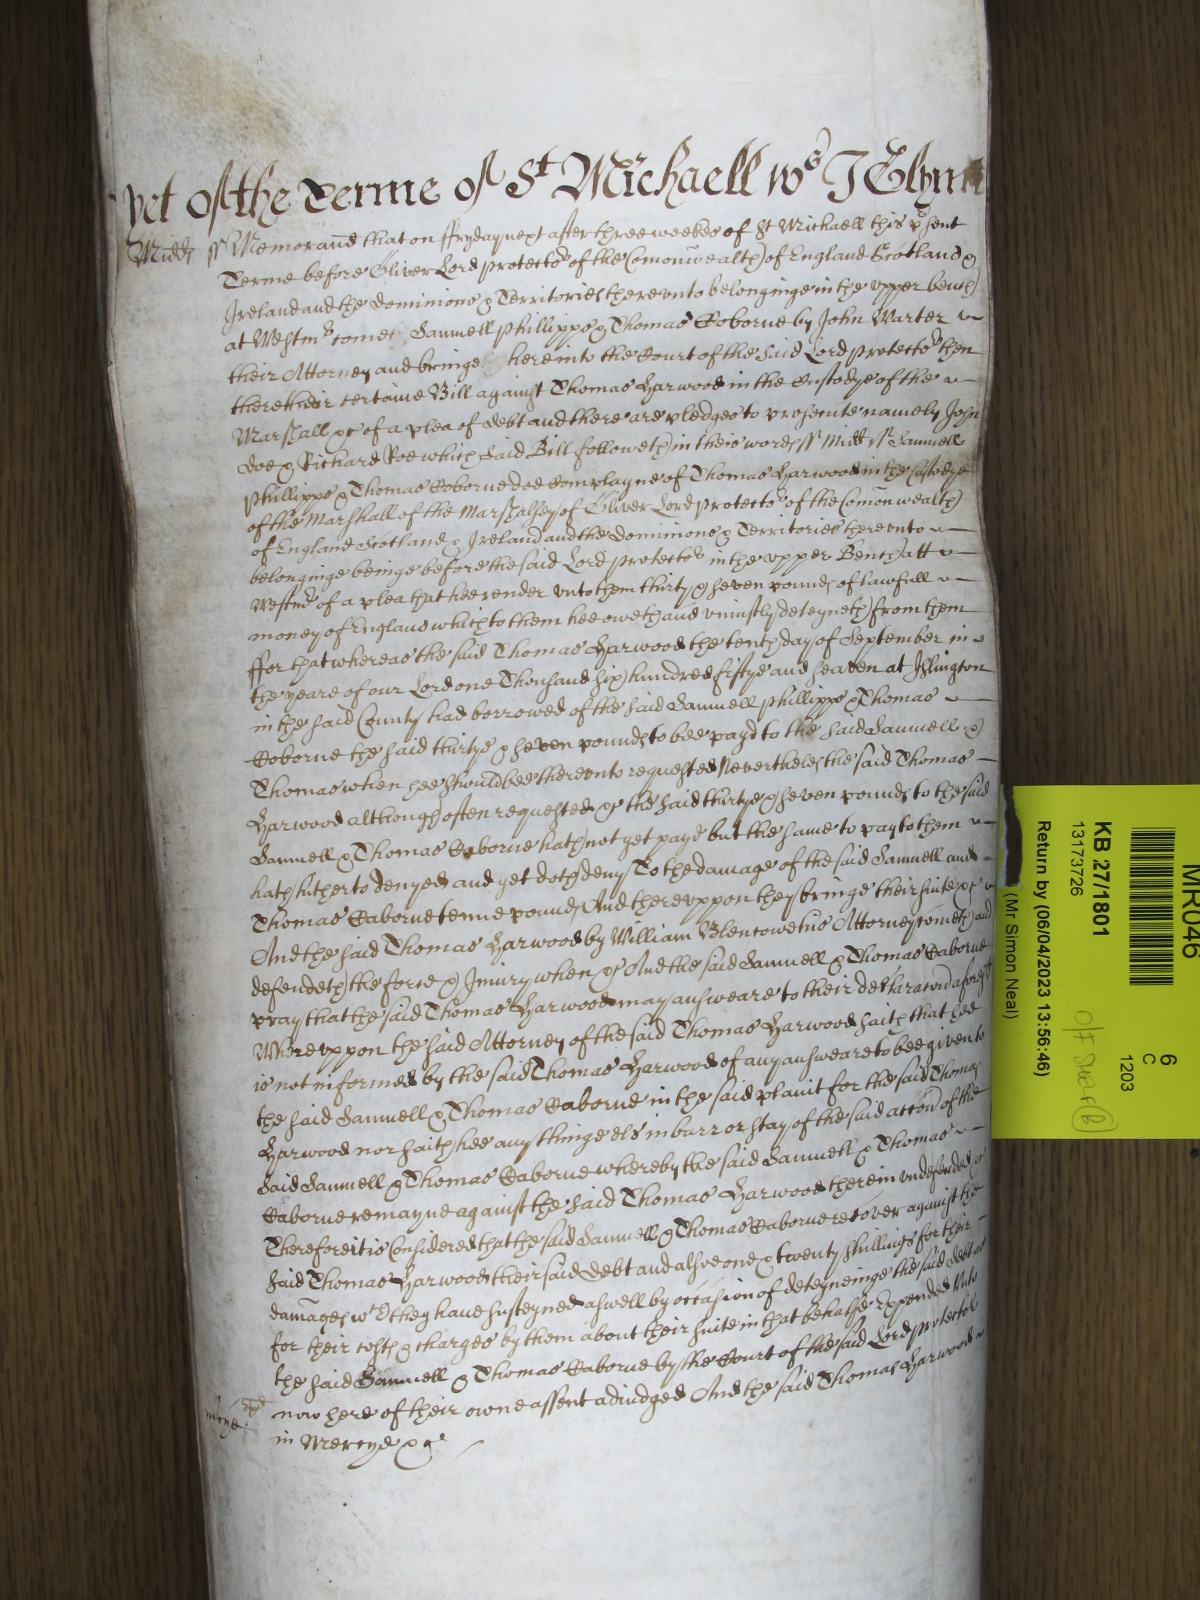 yet of the Terme of St Michaell ws J Glynn
Midds ss Memorand that on ffryday next after three weekes of St Michaell this psent
Terme before Oliver Lord protector of the Comonwealth of England Scotland &
Ireland and the dominions & Territories thereunto belonginge in the upper bench
at Westmr come Samuell Phillipps & Thomas Coborne by John Warter
their Attorney and bringe here into the Court of the said Lord protector then
there their certaine Bill against Thomas Harwood in the Custodye of the
Marshall &c of a plea of debt and there are pledges to prosecute namely John
Doe & Richard Roe which said Bill followeth in theis words ss Midd ss Samuell
Phillipps & Thomas Coborne doe Complayne of Thomas Harwood in the Custodye
of the Marshall of the Marshalsey of Oliver Lord protector of the Comonwealth
of England Scotland & Ireland and the dominions & Territories thereunto
belonginge beinge before the said Lord protector in the upper Bench att
Westmr of a plea that hee render unto them thirty & seven pounds of lawfull
money of England which to them hee oweth and uniustly deteyneth from them
ffor that whereas the said Thomas Harwood the tenth day of September in
the yeare of our Lord one Thousand six hundred fiftye and seaven at Islington
in the said County had borrowed of the said Samuell Phillipps & Thomas
Coborne the said thirtye & seven pounds to bee payd to the said Samuell &
Thomas when hee should bee thereunto requested Nevertheles the said Thomas
Harwood although often requested &c the said thirtye & seven pounds to the said
Samuell & Thomas Coborne hath not yet payd but the same to pay to them
hath hitherto denyed and yet doth deny To the damage of the said Samuell and
Thomas Caborne tenne pounds And thereuppon they bringe their suite &c
And the said Thomas Harwood by William Blencowe his Attorney cometh and
defendeth the force & Iniury when &c And the said Samuell & Thomas Caborne
pray that the said Thomas Harwood may answeare to their declaracon aforesd
Whereuppon the said Attorney of the said Thomas Harwood saith that hee
is not informed by the said Thomas Harwood of any answeare to bee given to
the said Samuell & Thomas Caborne in the said plaint for the said Thomas
Harwood nor saith hee any thinge els in barr or stay of the said accon of the
said Samuell & Thomas Caborne whereby the said Samuell & Thomas
Caborne remayne against the said Thomas Harwood therein undefended &c
Therefore it is Considered that the said Samuell & Thomas Caborne recover against the
said Thomas Harwood their said debt and alsoe one & twenty shillings for their
damages wch they have susteyned aswell by occasion of deteyneinge the said debt as
for their costs & charges by them about their suite in that behalfe Expended unto
the said Samuell & Thomas Caborne by the Court of the said Lord protector
now here of their owne assent adiudged And the said Thomas Harwood
in Mercye &c
MR046
6
C
1203
KB 27/1801
13173726
Return by (06/04/2023 13:56:46)
(Mr Simon Neal)